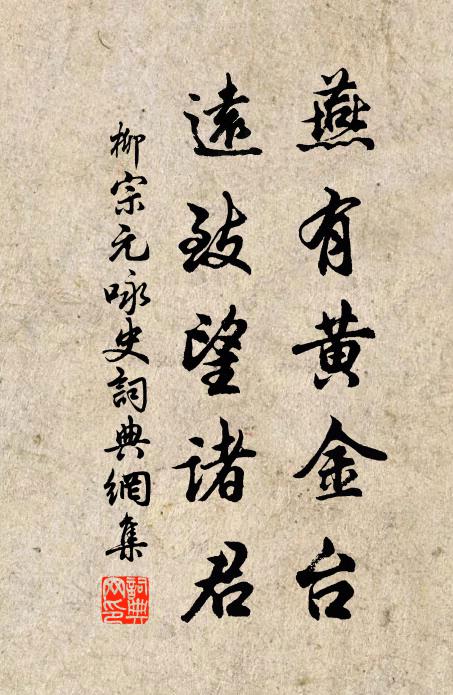 燕有黄金台
遠致望诸君
柳宗元咏史詞典網集
詞典网印